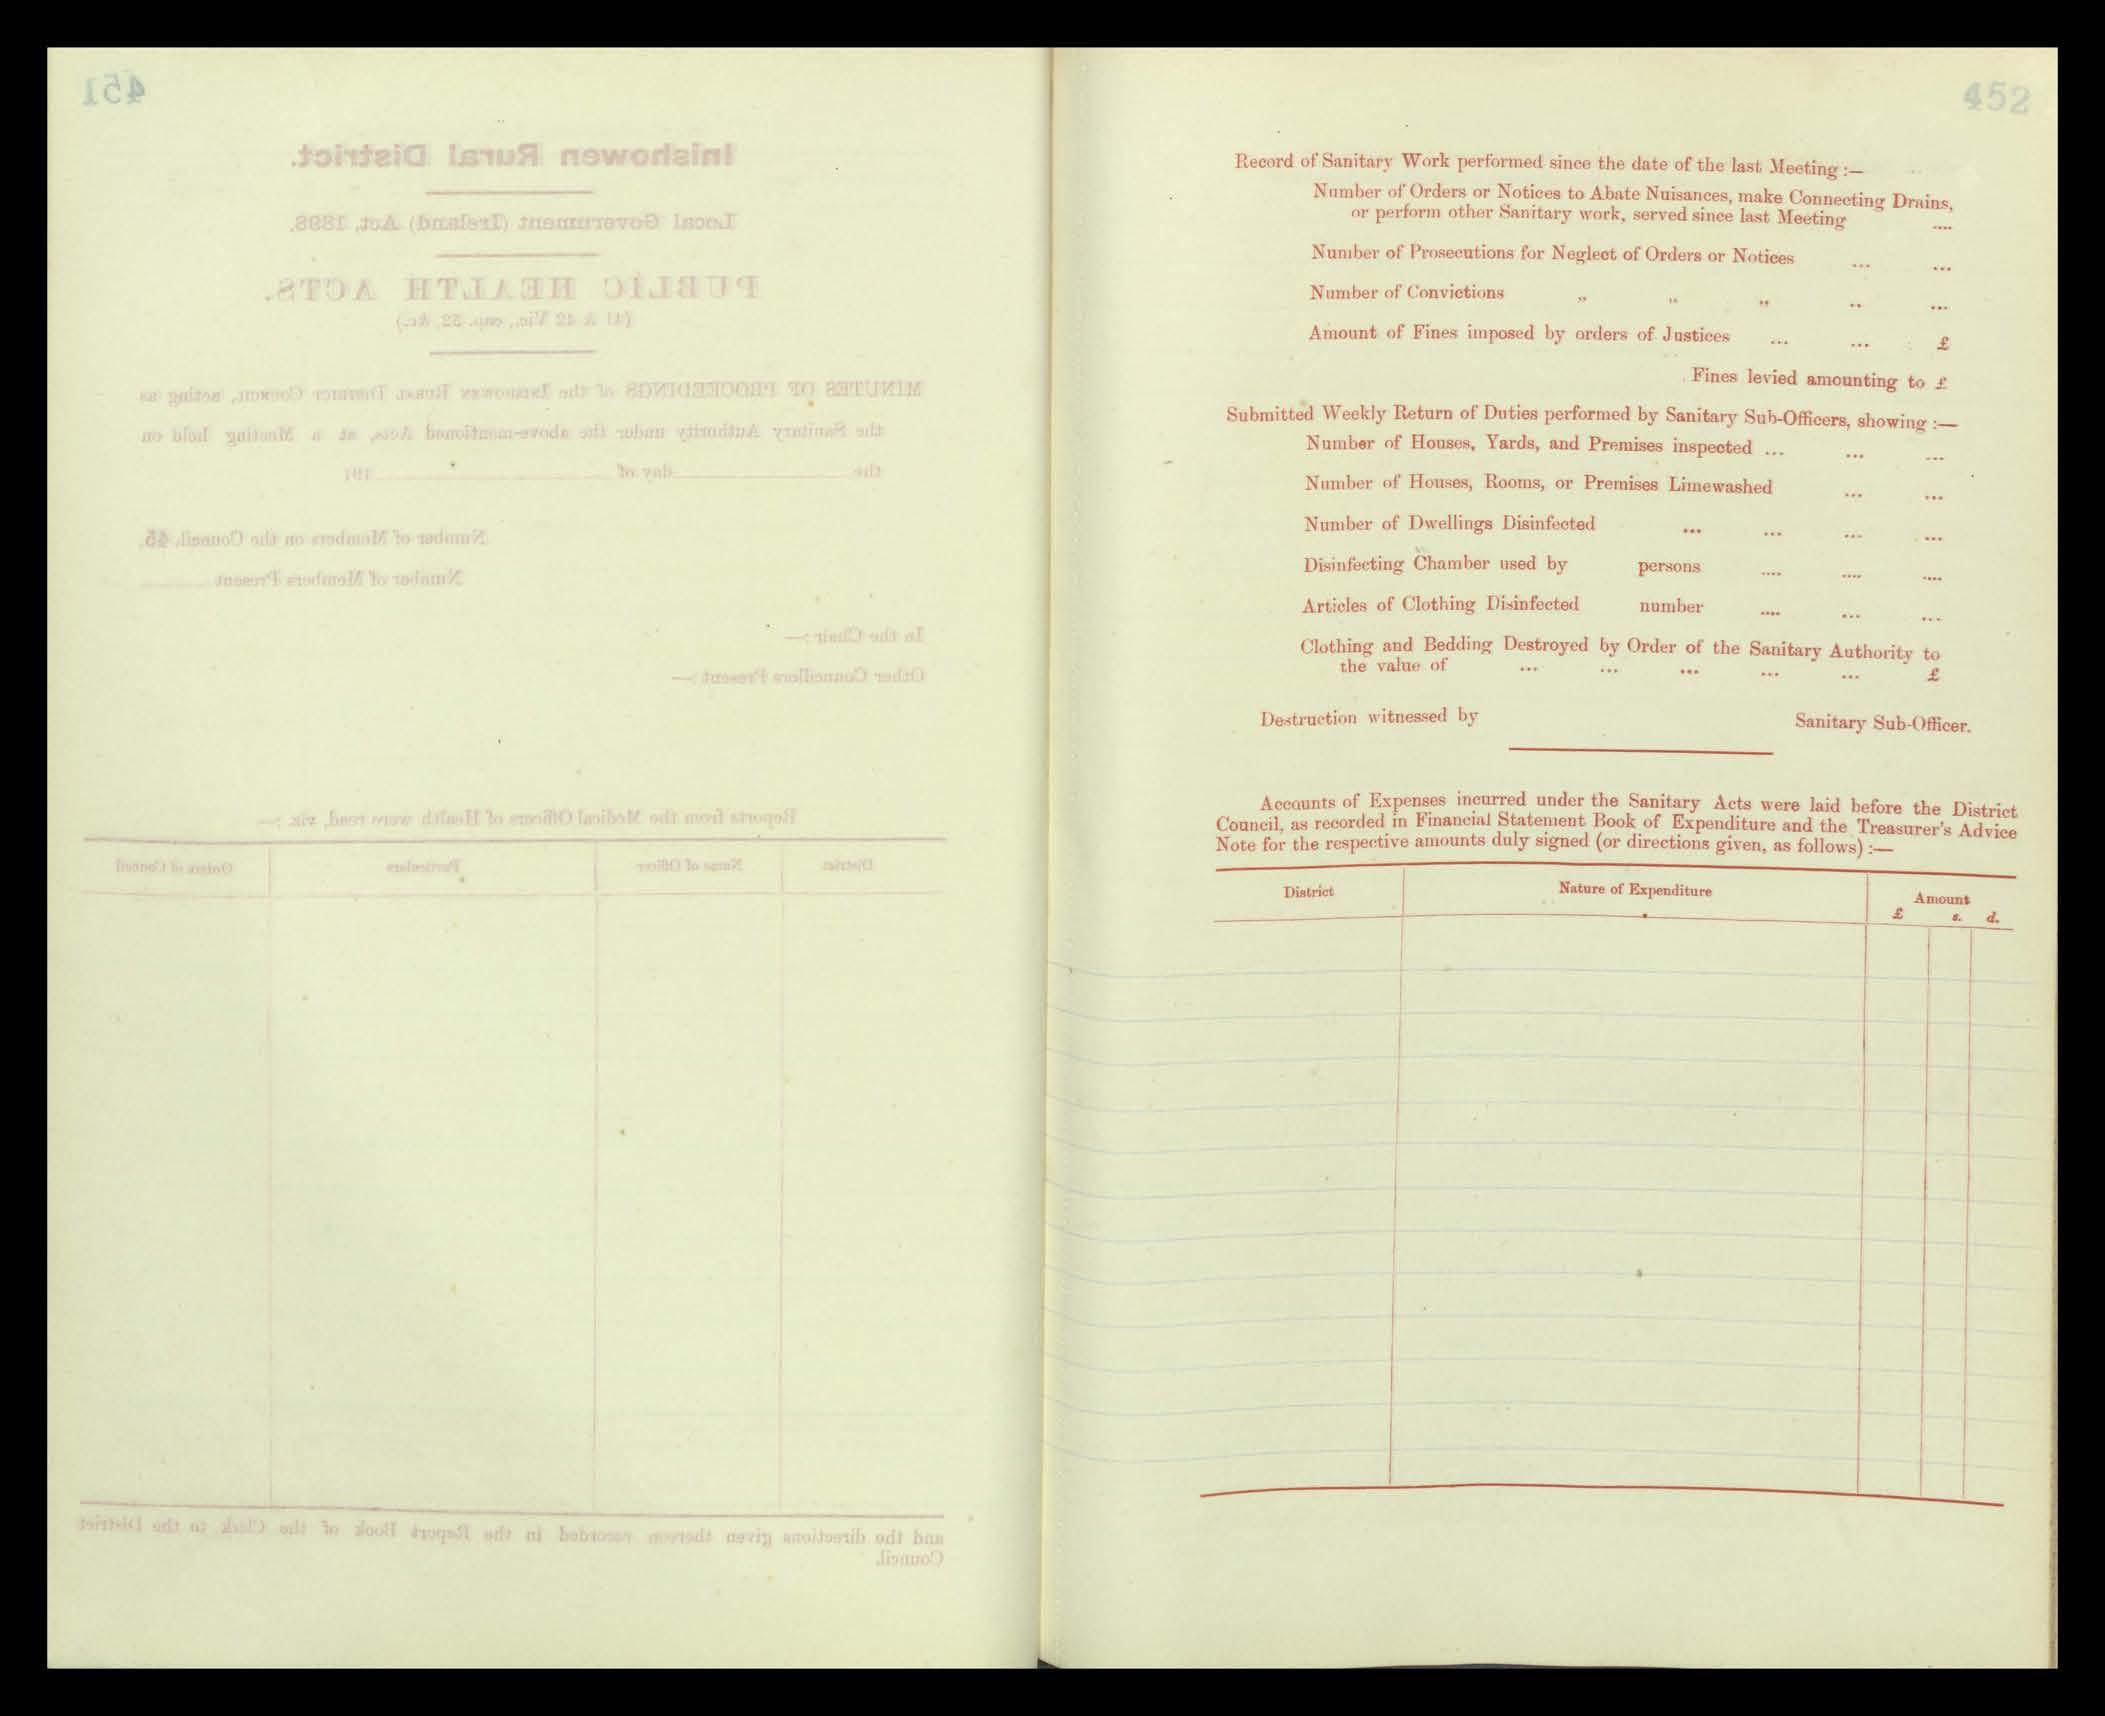 451
Inishowen Rural District.
Local Government (Ireland) Act, 1898.
PUBLIC HEALTH ACTS.
(41 & 42 Vic., cap. 52, &c.)
MINUTES OF PROCEEDINGS of the Inishowen Rural District Council, acting as
the Sanitary Authority under the above-mentioned Acts, at a Meeting held on
the day of 191
Number of Members on the Council, 45.
Number of Members Present
In the Chair :—
Other Councillors Present :—
Reports from the Medical Officers of Health were read, viz. :—
District Name of Officer Particulars Orders of Council
and the directions given thereon recorded in the Report Book of the Clerk to the District
Council.
452
Record of Sanitary Work performed since the date of the last Meeting :—
Number of Orders or Notices to Abate Nuisances, make Connecting Drains,
or perform other Sanitary work, served since last Meeting ....
Number of Prosecutions for Neglect of Orders or Notices ... ...
Number of Convictions „ „ „ .. ...
Amount of Fines imposed by orders of Justices ... ... £
Fines levied amounting to £
Submitted Weekly Return of Duties performed by Sanitary Sub-Officers, showing :—
Number of Houses, Yards, and Premises inspected ... ... ...
Number of Houses, Rooms, or Premises Limewashed ... ...
Number of Dwellings Disinfected ... ... ... ...
Disinfecting Chamber used by persons .... .... ....
Articles of Clothing Disinfected number .... ... ...
Clothing and Bedding Destroyed by Order of the Sanitary Authority to
the value of ... ... ... ... ... £
Destruction witnessed by Sanitary Sub-Officer.
Accounts of Expenses incurred under the Sanitary Acts were laid before the District
Council, as recorded in Financial Statement Book of Expenditure and the Treasurer's Advice
Note for the respective amounts duly signed (or directions given, as follows) :—
District Nature of Expenditure Amount
£ s. d.